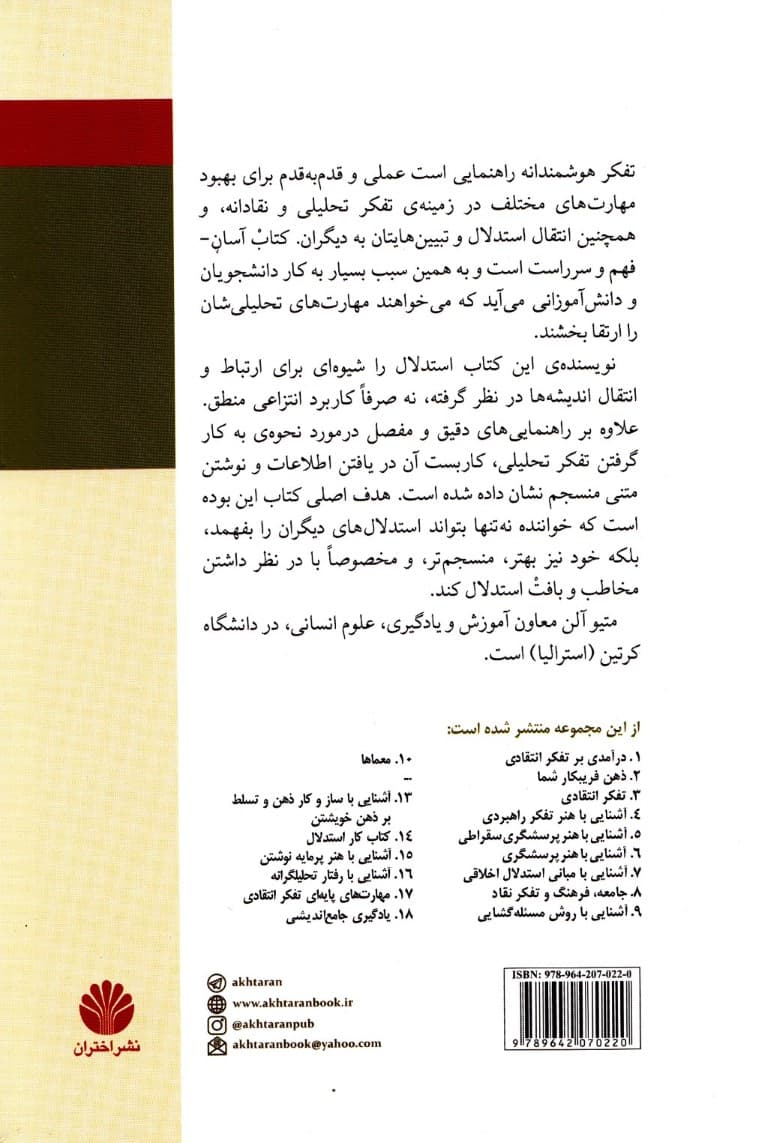 تفکر هوشمندانه راهنمایی است عملی و قدم‌به‌قدم برای بهبود
مهارت‌های مختلف در زمینه‌ی تفکر تحلیلی و نقادانه، و
همچنین انتقال استدلال و تبیین‌هایتان به دیگران. کتابْ آسان-
فهم و سرراست است و به همین سبب بسیار به کار دانشجویان
و دانش‌آموزانی می‌آید که می‌خواهند مهارت‌های تحلیلی‌شان
را ارتقا بخشند.
نویسنده‌ی این کتاب استدلال را شیوه‌ای برای ارتباط و
انتقال اندیشه‌ها در نظر گرفته، نه صرفاً کاربرد انتزاعی منطق.
علاوه بر راهنمایی‌های دقیق و مفصل درمورد نحوه‌ی به کار
گرفتن تفکر تحلیلی، کاربست آن در یافتن اطلاعات و نوشتن
متنی منسجم نشان داده شده است. هدف اصلی کتاب این بوده
است که خواننده نه‌تنها بتواند استدلال‌های دیگران را بفهمد،
بلکه خود نیز بهتر، منسجم‌تر، و مخصوصاً با در نظر داشتن
مخاطب و بافتْ استدلال کند.
متیو آلن معاون آموزش و یادگیری، علوم انسانی، در دانشگاه
کرتین (استرالیا) است.
از این مجموعه منتشر شده است:
۱. درآمدی بر تفکر انتقادی
۲. ذهن فریبکار شما
۳. تفکر انتقادی
۴. آشنایی با هنر تفکر راهبردی
۵. آشنایی با هنر پرسشگری سقراطی
۶. آشنایی با هنر پرسشگری
۷. آشنایی با مبانی استدلال اخلاقی
۸. جامعه، فرهنگ و تفکر نقاد
۹. آشنایی با روش مسئله‌گشایی
۱۰. معماها
...
۱۳. آشنایی با ساز و کار ذهن و تسلط
بر ذهن خویشتن
۱۴. کتاب کار استدلال
۱۵. آشنایی با هنر پرمایه نوشتن
۱۶. آشنایی با رفتار تحلیلگرانه
۱۷. مهارت‌های پایه‌ای تفکر انتقادی
۱۸. یادگیری جامع‌اندیشی
akhtaran
www.akhtaranbook.ir
@akhtaranpub
akhtaranbook@yahoo.com
نشر اختران
ISBN: 978-964-207-022-0
9 789642 070220